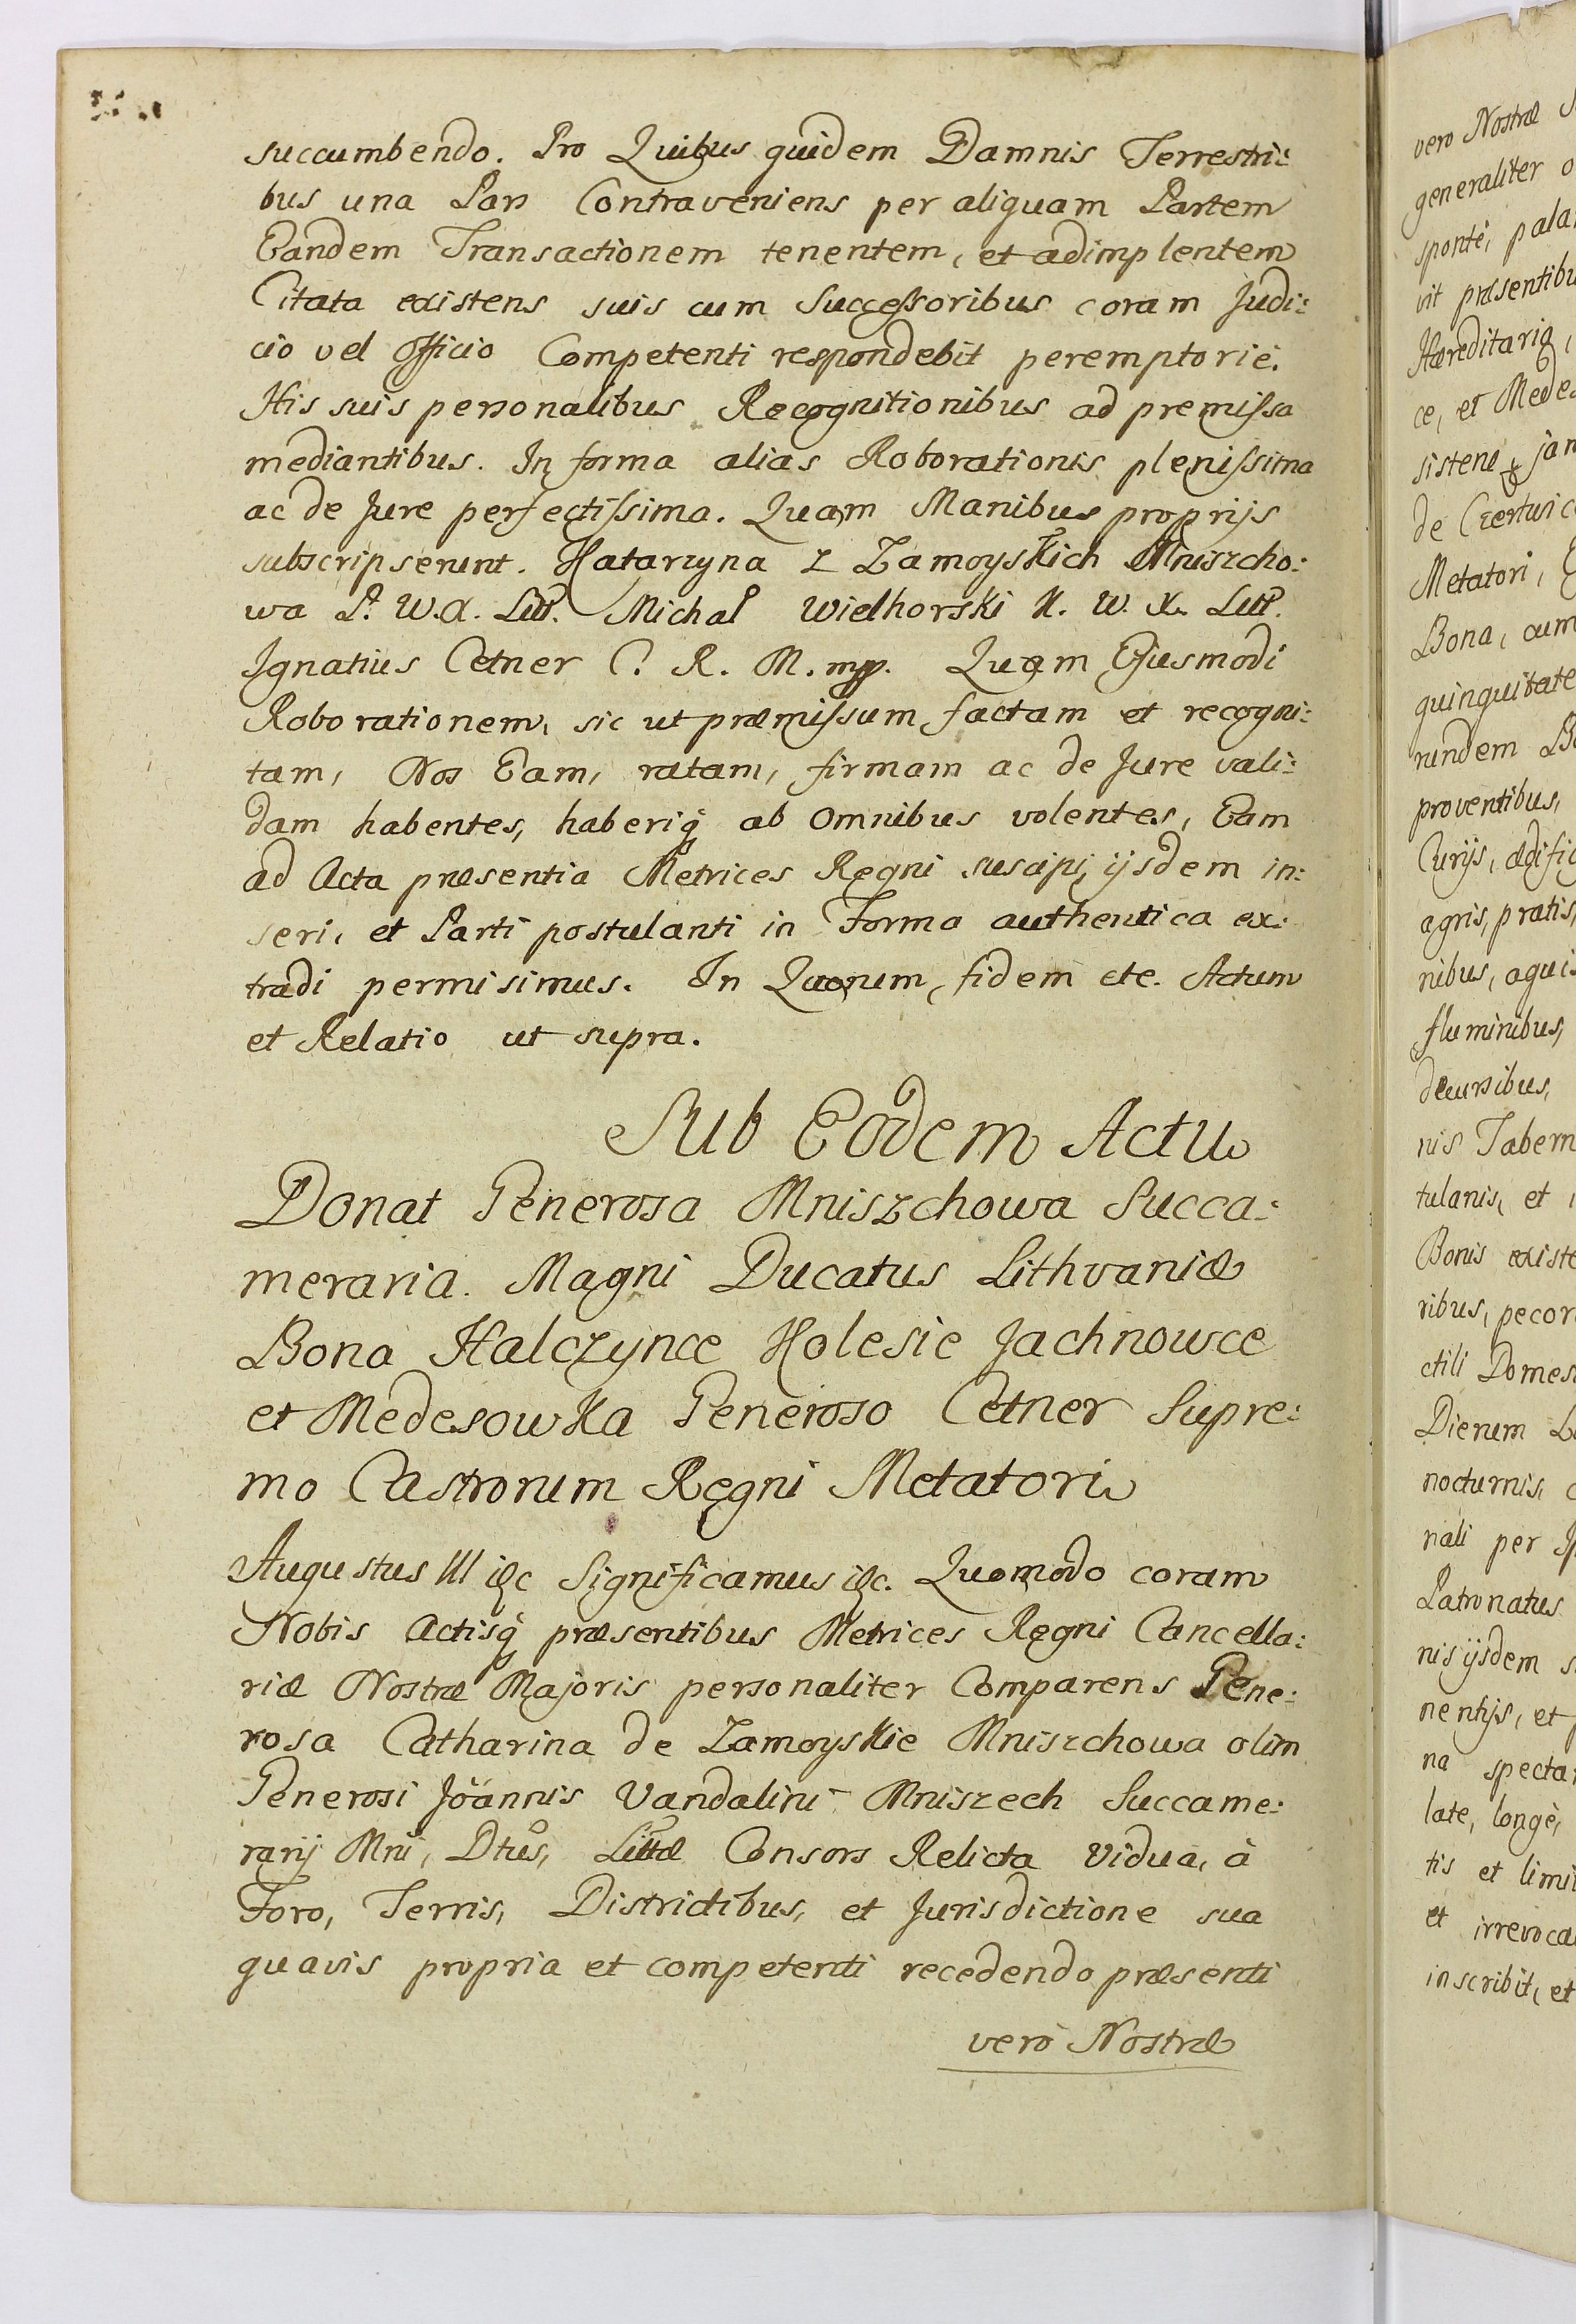 succumbendo. Pro Quibus quidem Damnis Terrestri:
bus una Pars Contraveniens per aliquam Partem
Eandem Transactionem tenentem, et adimplentem
Citata existens suis cum Successoribus coram Judi:
cio vel Officio Competenti respondebit peremptoriè.
His suis personalibus Recognitionibus ad premissa
mediantibus. In forma alias Roborationis plenissima
ac de Jure perfectissima. Quam Manibus proprijs
subscripserunt. Katarzyna z Zamoyskich Mniszcho:
wa P. W. X. Litt. Michał Wielhorski K. W. X. Litt.
Ignatius Cetner C. R. M. mpp. Quam Ejusmodi
Roborationem, sic ut præmissum factam et recogni:
tam, Nos Eam, ratam, firmam ac de Jure vali:
dam habentes, haberiq ab omnibus volentes, Eam
ad Acta præsentia Metrices Regni suscipi, ijsdem in:
seri, et Parti postulanti in Forma authentica ex:
tradi permisimus. In Quorum, fidem etc. Actum
et Relatio ut supra.
Sub Eodem Actu
Donat Generosa Mniszchowa Succa:
meraria. Magni Ducatus Lithvaniæ
Bona Halczynce Holesie Jachnowce
et Medesowka Generoso Cetner Supre:
mo Castrorum Regni Metatori
Augustus III etc Significamus etc. Quomodo coram
Nobis Actisq præsentibus Metrices Regni Cancella:
riæ Nostræ Majoris personaliter Comparens Gene:
rosa Catharina de Zamoyskie Mniszchowa olim
Generosi Joannis Vandalini Mniszech Succame:
rarij Mni, Dtus, Littæ Consors Relicta Vidua, à
Foro, Terris, Districtibus, et Jurisdictione sua
quavis propria et competenti recedendo præsenti
verò Nostræ
vero Nostræ
generaliter
spontè,
vit
Hæreditaria,
ce, et
de
Metatori,
Bona, cum
proventibus,
Curijs,
agris, pratis,
nibus,
fluminibus,
decursibus,
nis
tulanis, et
Bonis
ribus,
ctili
Dierum
nocturnis,
nali per
Patronatus
nis ijsdem
nentijs, et
na
late, longè,
tis et
et
inscribit, et